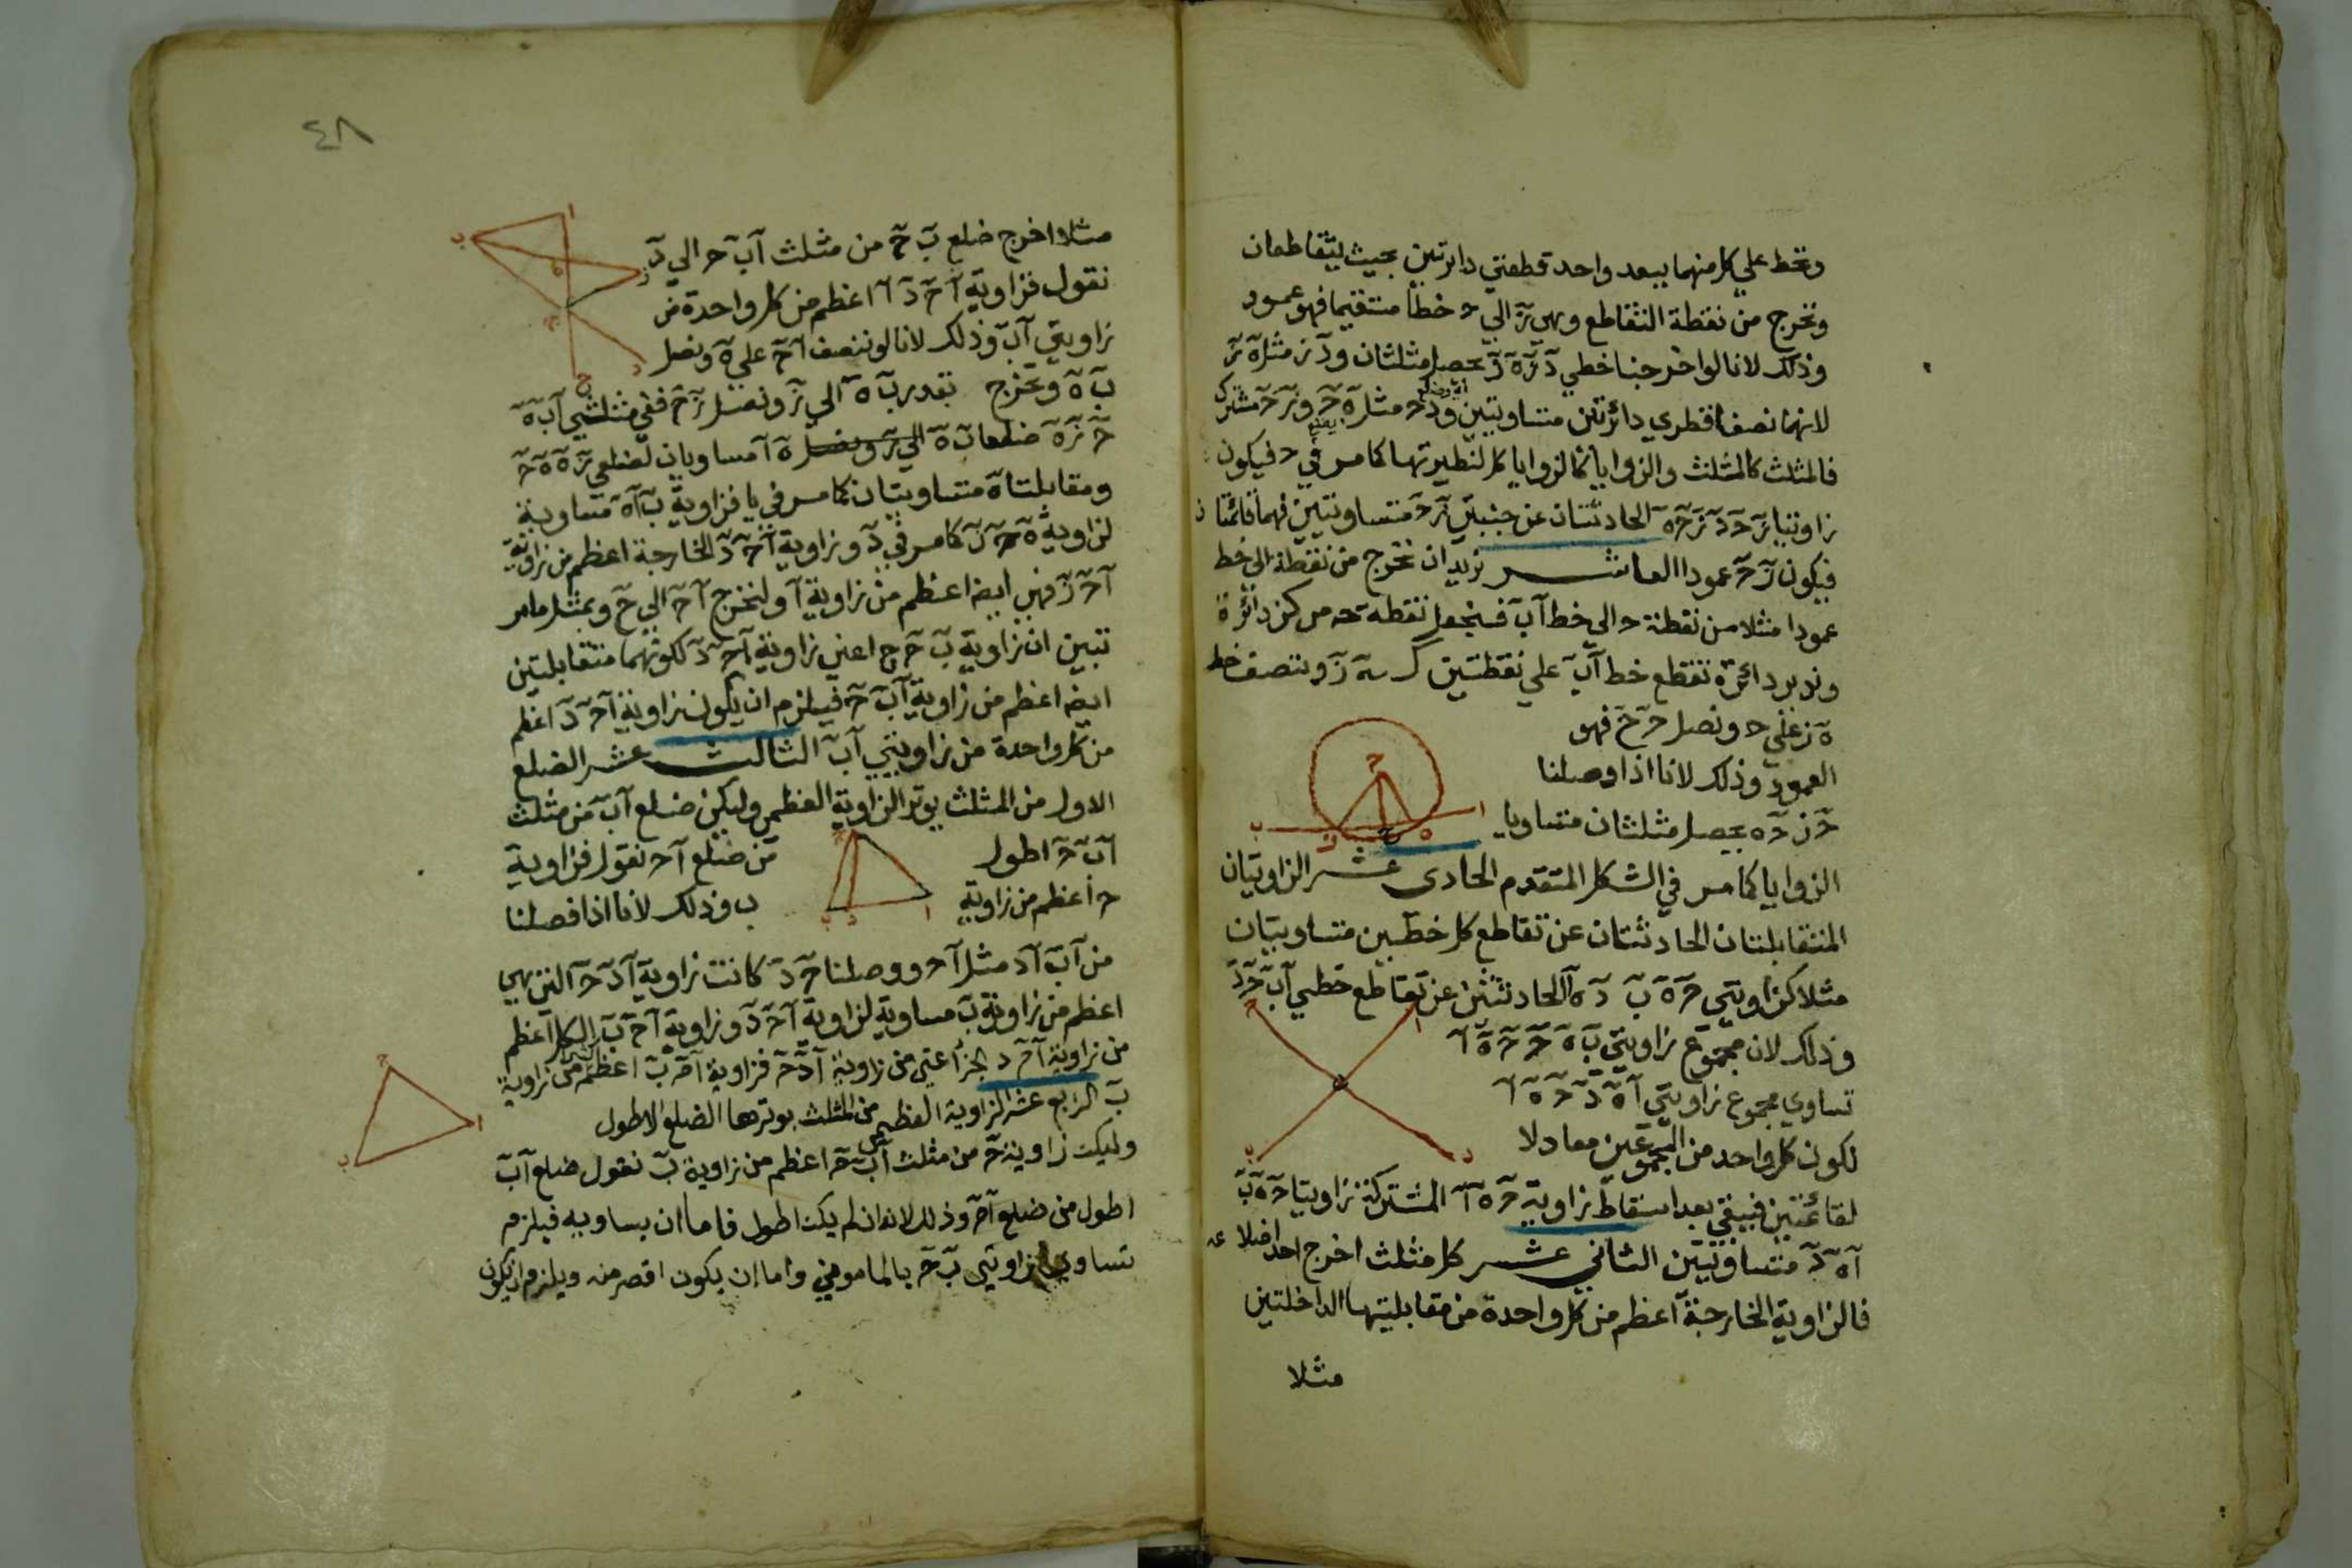 ونخط علي كل منهما ببعد واحد قطعتي دائرتين بحيث يتقاطعان
ونخرج من نقطة التقاطع وهي ز الي ح خطا مستقيما فهو عمود
وذلك لانا لو اخرجنا خطي د ز ه ز يحصل مثلثان ود ز مثل ه ز
لانهما نصفا قطري دائرتين متساويتين و د ح مثل ه ح و ز ح مشترك
فالمثلث كالمثلث والزوايا كالزوايا كل لنظيرتها كما مر في ح فيكون
زاويتا ز ح د ز ح ه الحادثتان عن جنبتي ز ح متساويتين فهما قائمتان
فيكون ز ح عمودا العاشر نريد ان نخرج من نقطة الي خط
عمودا مثلا من نقطة ح الي خط آب فنجعل نقطة ح مركز دائرة
وندير دائرة تقطع خط آب علي نقطتين ه ز وننصف خط
ه ز علي ح ونصل ح ح فهو
العمود وذلك لانا اذا وصلنا
ح ز ح ه يحصل مثلثان متساويا
الزوايا كما مر في الشكل المتقدم الحادي عشر الزاويتان
المتقابلتان الحادثتان عن تقاطع كل خطين متساويتان
مثلا كزاويتي ح ه ب د ه آ الحادثتين عن تقاطع خطي آب ح د
وذلك لان مجموع زاويتي ب ه ح ح ه آ
تساوي مجموع زاويتي آ ه د ح ه آ
لكون كل واحد من المجموعين معادلا
لقائمتين فيبقي بعد اسقاط زاوية ح ه آ المشتركة زاويتا ح ه ب
آ ه د متساويتين الثاني عشر كل مثلث اخرج احد اضلاعه
فالزاوية الخارجة اعظم من كل واحدة من مقابلتيها الداخلتين
مثلا
٤٨
مثلا اخرج ضلع ب ح من مثلث آ ب ح الي د
نقول فزاوية آ ح د اعظم من كل واحدة من
زاويتي آ ب وذلك لانا لو ننصف آ ح علي ه ونصل
ب ه ونخرج بقدر ب ه الي ز ونصل ز ح ففي مثلثي آ ب ه
ح ز ه ضلعا ب ه ه آ مساويان لضلعي ز ه ه ح
ومقابلتا ه متساويتان كما مر في يا فزاوية ب آ ه متساوية
لزاوية ه ح ز كما مر في د وزاوية آ ح د الخارجة اعظم من زاوية
آ ح ز فهي ايضا اعظم من زاوية آ ولنخرج آ ح الي ح وبمثل ما مر
تبين ان زاوية ب ح ح اعني زاوية آ ح د لكونهما متقابلتين
ايضا اعظم من زاوية آ ب ح فيلزم ان يكون زاوية آ ح د اعظم
من كل واحدة من زاويتي آ ب الثالث عشر الضلع
الاول من المثلث يوتر الزاوية العظمي وليكن ضلع آب من مثلث
آ ب ح اطول من ضلع آ ح نقول فزاوية
ح اعظم من زاوية ب وذلك لانا اذا فصلنا
من آب آد مثل آح ووصلنا ح د كانت زاوية آ د ح التي هي
اعظم من زاوية ب مساوية لزاوية آ ح د وزاوية آ ح ب الكل اعظم
من زاوية آ ح د الجزء اعني من زاوية آ د ح فزاوية آ ح ب اعظم من زاوية
ب الرابع عشر الزاوية العظمي من المثلث يوترها الضلع الاطول
وليكن زاوية ح من مثلث آ ب ح اعظم من زاوية ب نقول ضلع آ ب
اطول من ضلع آ ح وذلك لانه ان لم يكن اطول فاما ان يساويه فيلزم
تساوي زاويتي ب ح بالماموني واما ان يكون اقصر منه ويلزم ان يكون